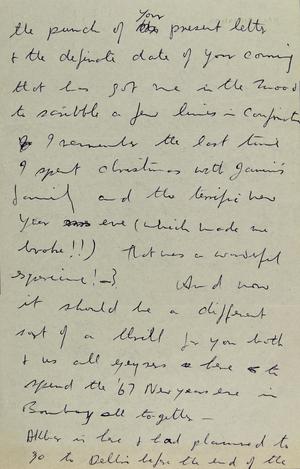 the punch of your present letter
& the definite date of your coming
that has got me in the mood
to scribble a few lines in
I remember the last time
I spent christmas with Jamil's
family and the terrific new
year eve (which made me
broke!!) That was a wonderful
experience! And now
it should be a different
sort of a thrill for you both
& us all here to
spend the '67 New years eve in
Bombay all together -
Akbar is here & had planned to
go to Delhi before the end of the